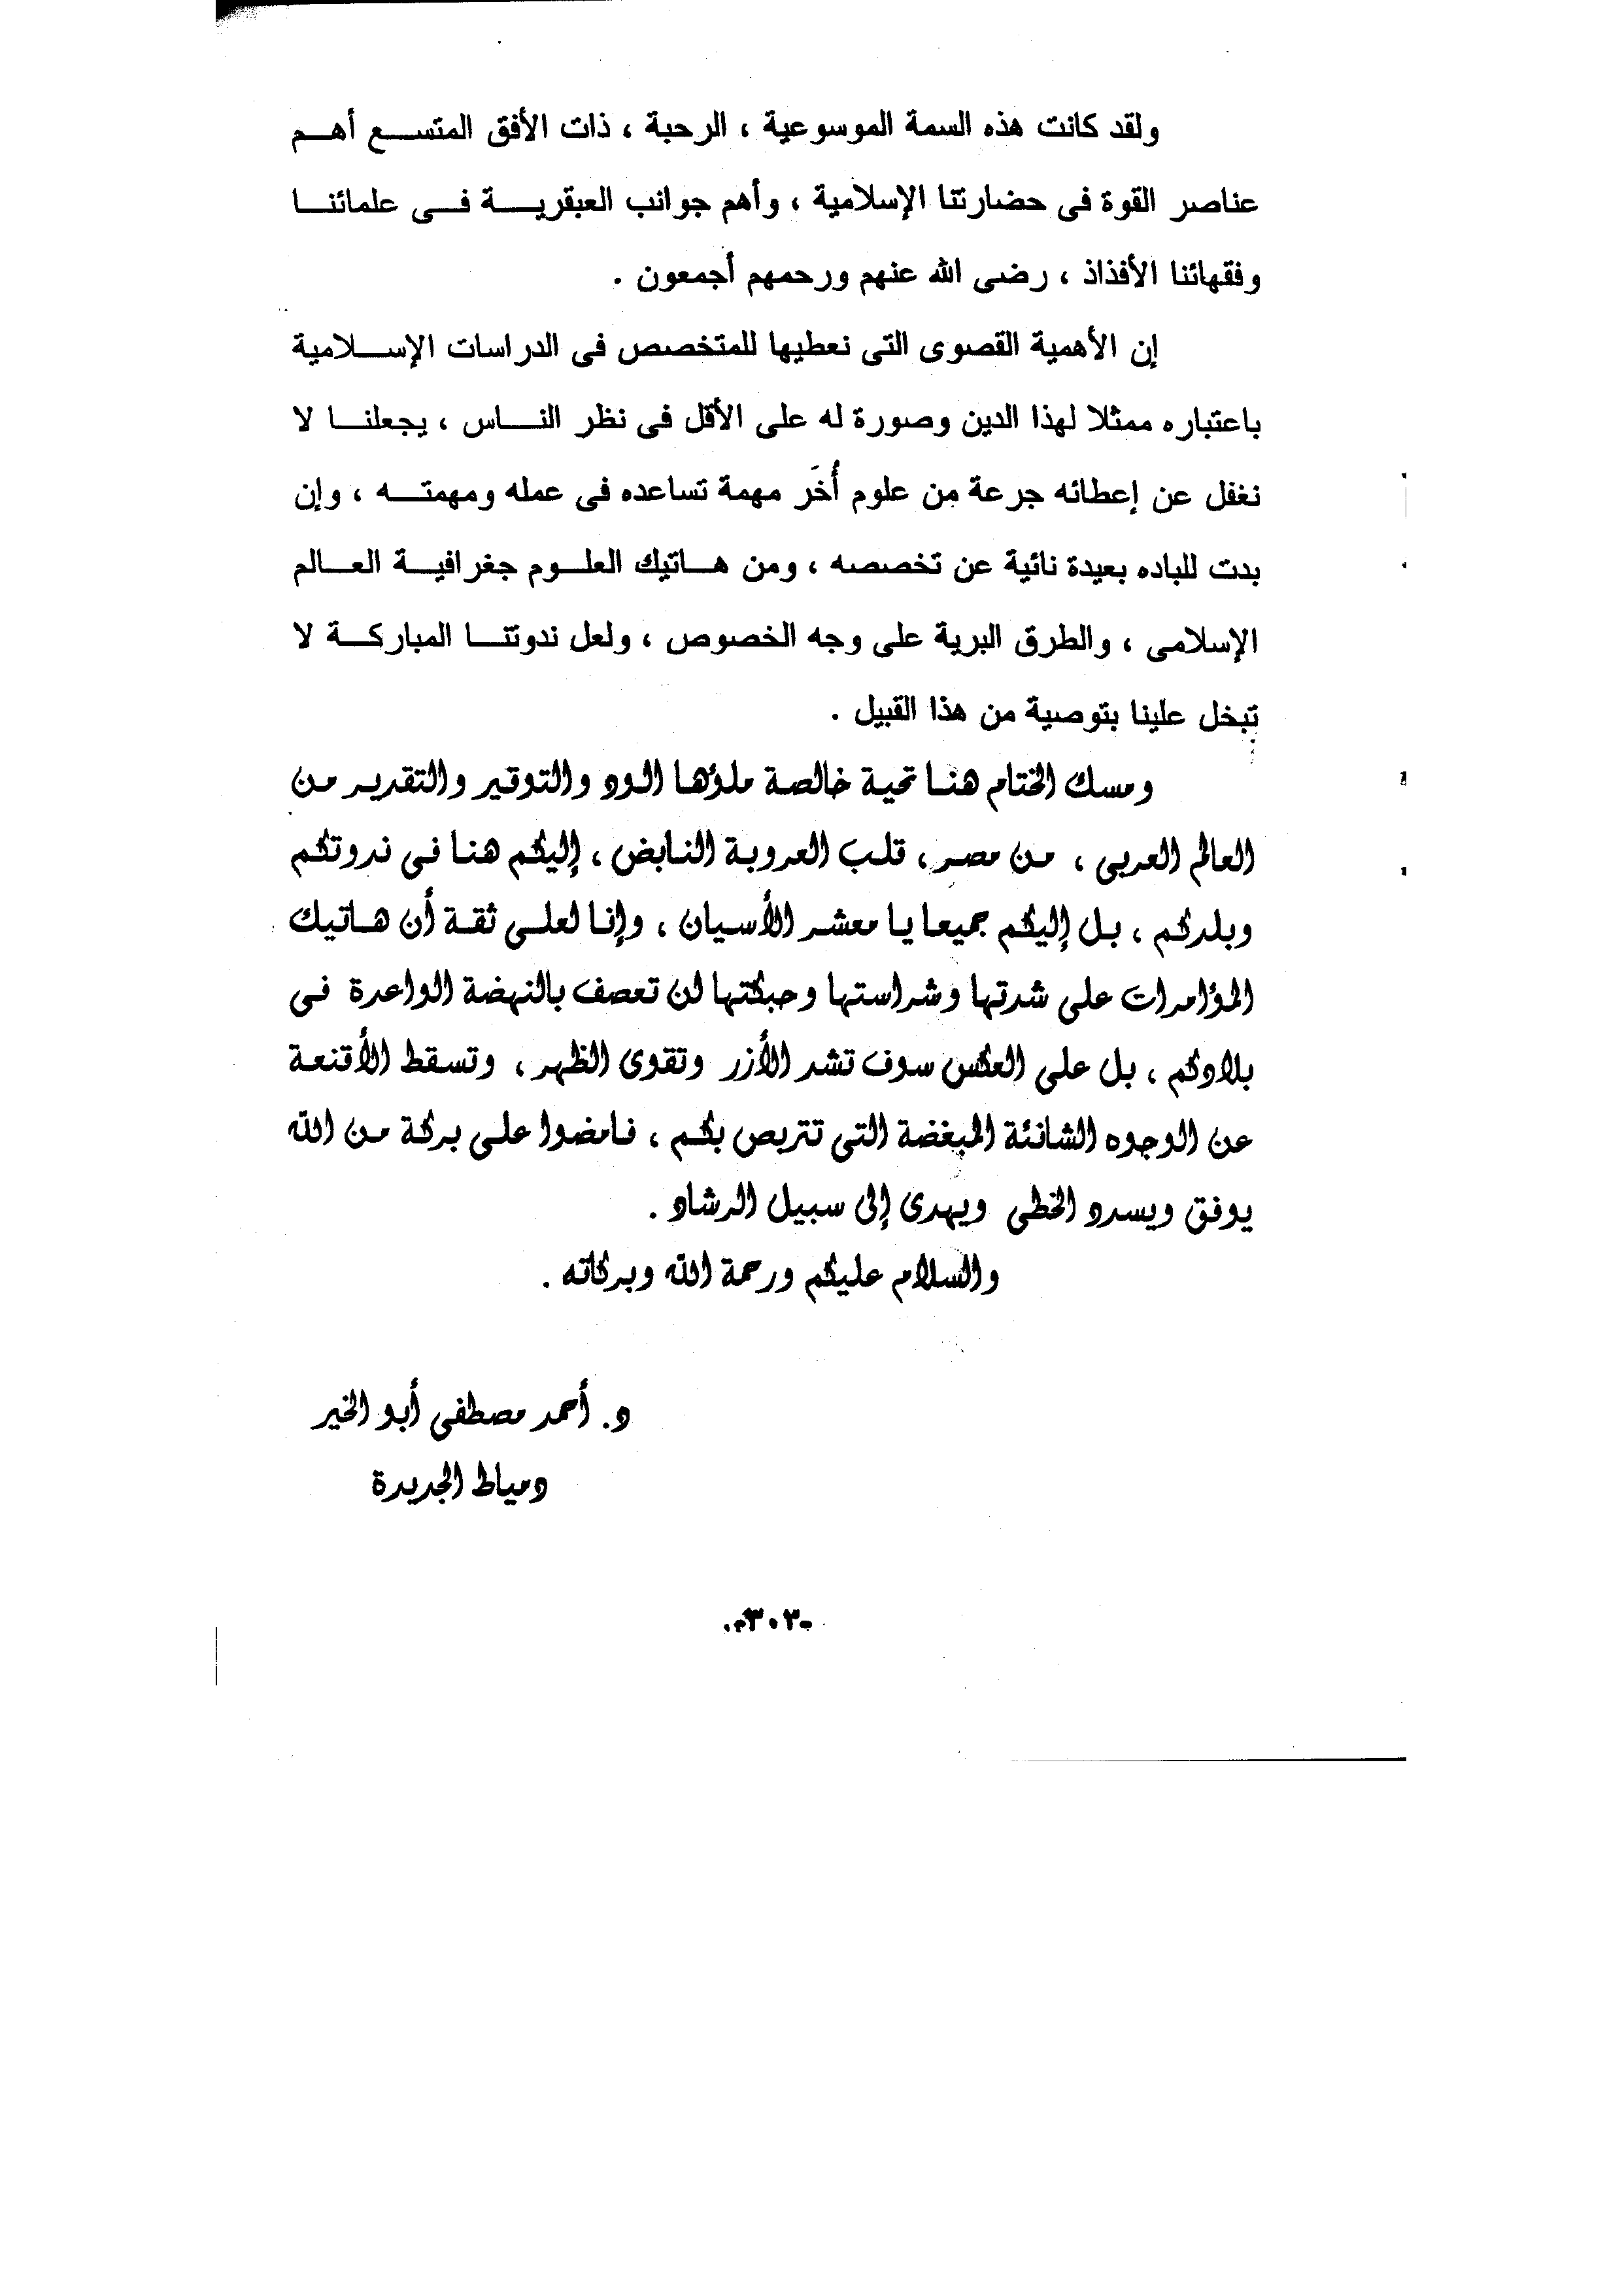 ولقد كانت هذه السمة الموسوعية ، الرحبة ، ذات الأفق المتسع أهم
عناصر القوة فى حضارتنا الإسلامية ، وأهم جوانب العبقرية فى علمائنا
وفقهائنا الأفذاذ ، رضى الله عنهم ورحمهم أجمعون .
إن الأهمية القصوى التى نعطيها للمتخصص فى الدراسات الإسلامية
باعتباره ممثلا لهذا الدين وصورة له على الأقل فى نظر الناس ، يجعلنا لا
نغفل عن إعطائه جرعة من علوم أُخَر مهمة تساعده فى عمله ومهمته ، وإن
بدت للباده بعيدة نائية عن تخصصه ، ومن هاتيك العلوم جغرافية العالم
الإسلامى ، والطرق البرية على وجه الخصوص ، ولعل ندوتنا المباركة لا
تبخل علينا بتوصية من هذا القبيل .
ومسك الختام هنا تحية خالصة ملؤها الود والتوقير والتقدير من
العالم العربى ، من مصر ، قلب العروبة النابض ، إليكم هنا فى ندوتكم
وبلدكم ، بل إليكم جميعا يا معشر الأسيان ، وإنا لعلى ثقة أن هاتيك
المؤامرات على شدتها وشراستها وحبكتها لن تعصف بالنهضة الواعدة فى
بلادكم ، بل على العكس سوف تشد الأزر وتقوى الظهر ، وتسقط الأقنعة
عن الوجوه الشائئة المبغضة التى تتربص بكم ، فامضوا على بركة من الله
يوفق ويسدد الخطى ويهدى إلى سبيل الرشاد .
والسلام عليكم ورحمة الله وبركاته .
د. أحمد مصطفى أبو الخير
دمياط الجديدة
-٣٠٢-